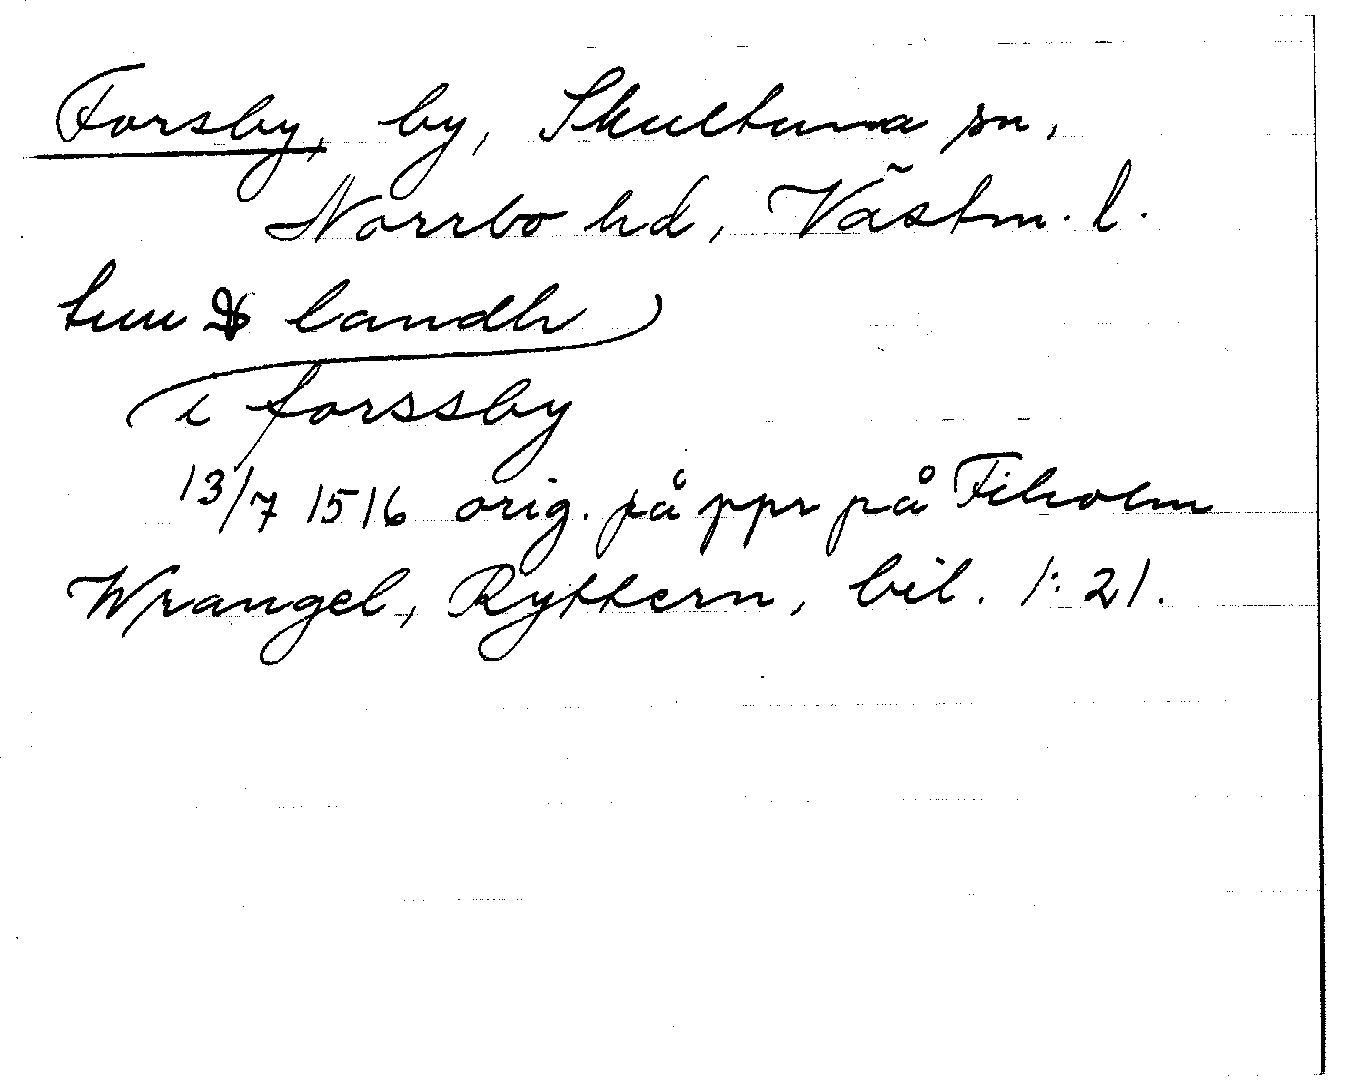 Forsby, by, Skultuna sn,
Norrbo hd, Västm. l.
landh
i forssby
13/7 1516 orig. på ppr på Fiholm
Wrangel, Ryttern, bil. 1:21.